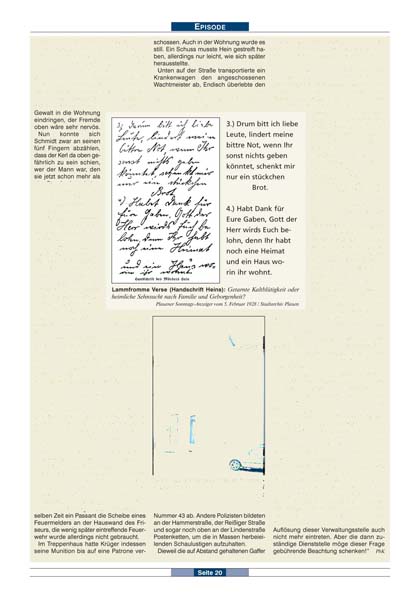 EPISODE
schossen. Auch in der Wohnung wurde es
still. Ein Schuss musste Hein gestreift ha-
ben, allerdings nur leicht, wie sich später
herausstellte.
Unten auf der Straße transportierte ein
Krankenwagen den angeschossenen
Wachtmeister ab, Endisch überlebte den
Gewalt in die Wohnung
eindringen, der Fremde
oben wäre sehr nervös.
Nun konnte sich
Schmidt zwar an seinen
fünf Fingern abzählen,
dass der Kerl da oben ge-
fährlich zu sein schien,
wer der Mann war, den
sie jetzt schon mehr als
3.) Drum bitt ich liebe
Leute, lindert meine
bittre Not, wenn Ihr
sonst nichts geben
könntet, schenkt mir
nur ein stückchen
Brot.
4.) Hubt Dank für
für Gaben, Gott der
Herr wirds Euch be-
lohn, denn Ihr habt
noch eine Heimat
und ein Haus wo-
rin ihr wohnt.
Handschrift des Mörders Hein
3.) Drum bitt ich liebe
Leute, lindert meine
bittre Not, wenn Ihr
sonst nichts geben
könntet, schenkt mir
nur ein stückchen
Brot.
4.) Habt Dank für
Eure Gaben, Gott der
Herr wirds Euch be-
lohn, denn Ihr habt
noch eine Heimat
und ein Haus wo-
rin ihr wohnt.
Lammfromme Verse (Handschrift Heins): Getarnte Kaltblütigkeit oder
heimliche Sehnsucht nach Familie und Geborgenheit?
Plauener Sonntags-Anzeiger vom 5. Februar 1928 / Stadtarchiv Plauen
selben Zeit ein Passant die Scheibe eines
Feuermelders an der Hauswand des Fri-
seurs, die wenig später eintreffende Feuer-
wehr wurde allerdings nicht gebraucht.
Im Treppenhaus hatte Krüger indessen
seine Munition bis auf eine Patrone ver-
Nummer 43 ab. Andere Polizisten bildeten
an der Hammerstraße, der Reißiger Straße
und sogar noch oben an der Lindenstraße
Postenketten, um die in Massen herbeiei-
lenden Schaulustigen aufzuhalten.
Dieweil die auf Abstand gehaltenen Gaffer
Auflösung dieser Verwaltungsstelle auch
nicht mehr eintreten. Aber die dann zu-
ständige Dienststelle möge dieser Frage
gebührende Beachtung schenken!"
Seite 20